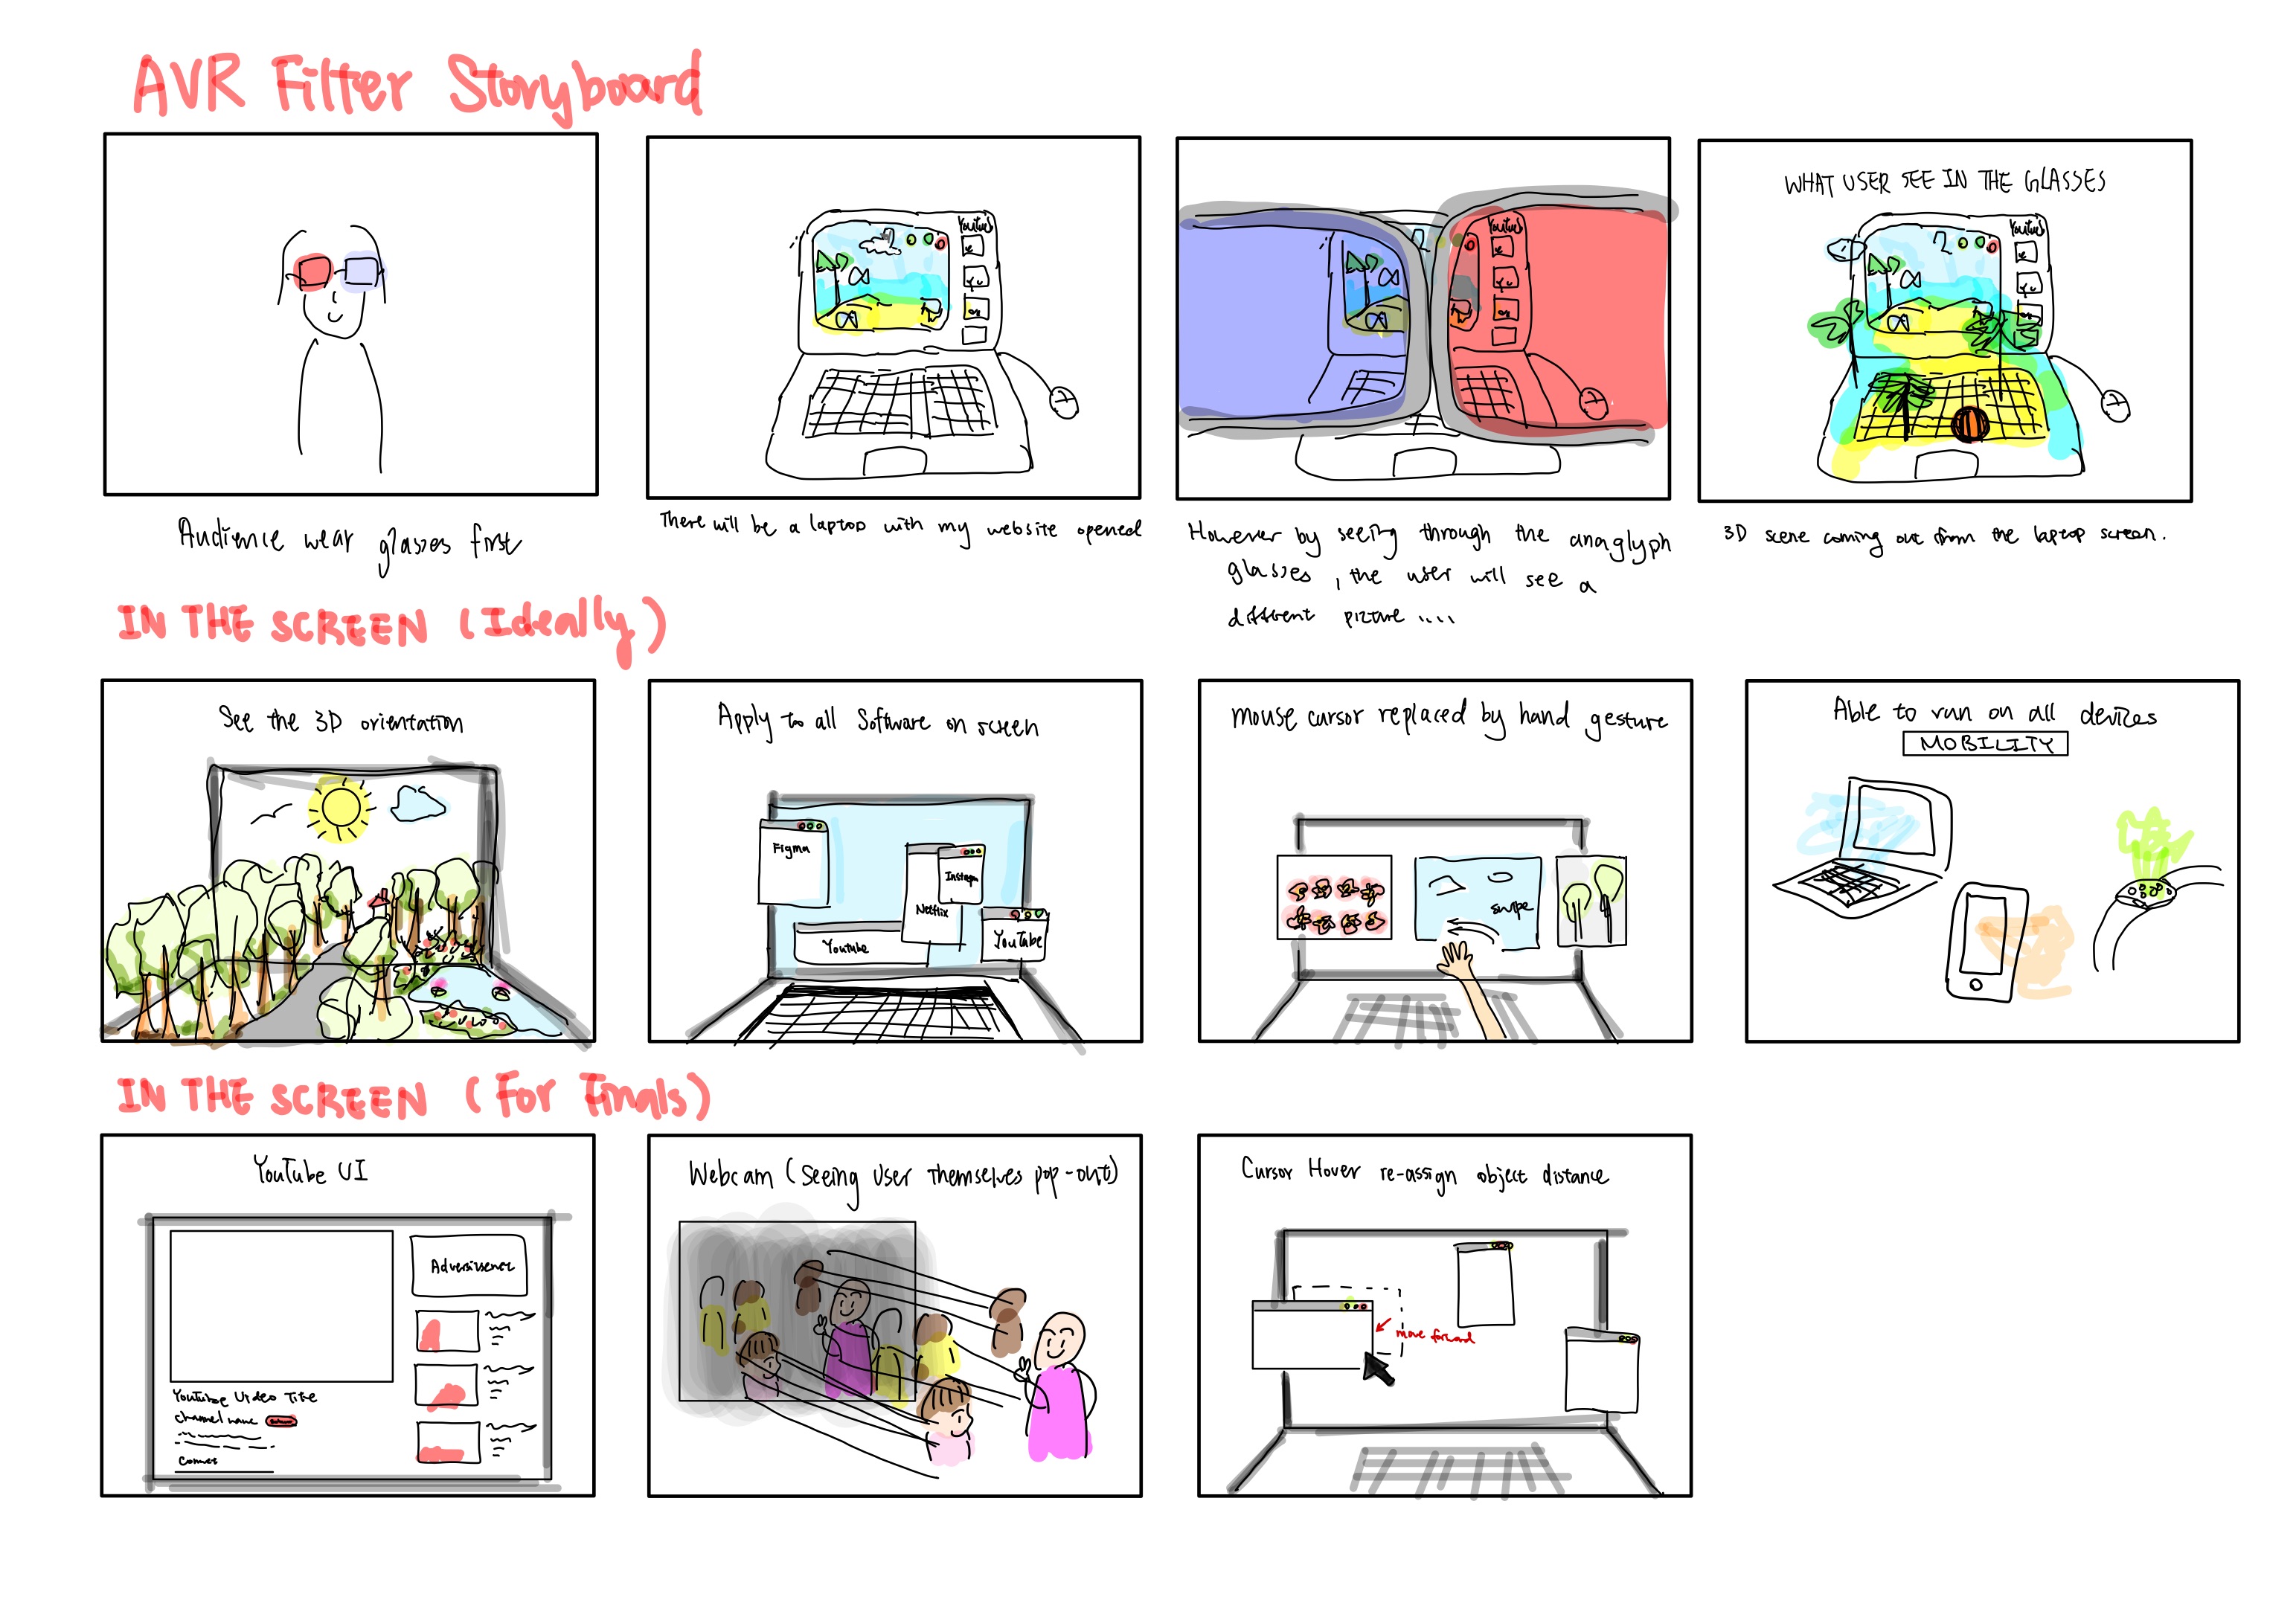 AVR Filter Storyboard
Youtube
Youtube
WHAT USER SEE IN THE GLASSES
Youtube
Audience wear glasses first
There will be a laptop with my website opened
However by seeing through the anaglyph
glasses, the user will see a
different picture ....
3D scene coming out from the laptop screen.
IN THE SCREEN (Ideally)
See the 3D orientation
Apply to all Software on screen
Figma
Instagm
Netflix
Youtube
YouTube
mouse cursor replaced by hand gesture
swipe
Able to run on all devices
MOBILITY
IN THE SCREEN (For Finals)
YouTube UI
Advertisement
Youtube Video Title
channel name
Webcam (Seeing User Themselves pop-out)
Cursor Hover re-assign object distance
move forward